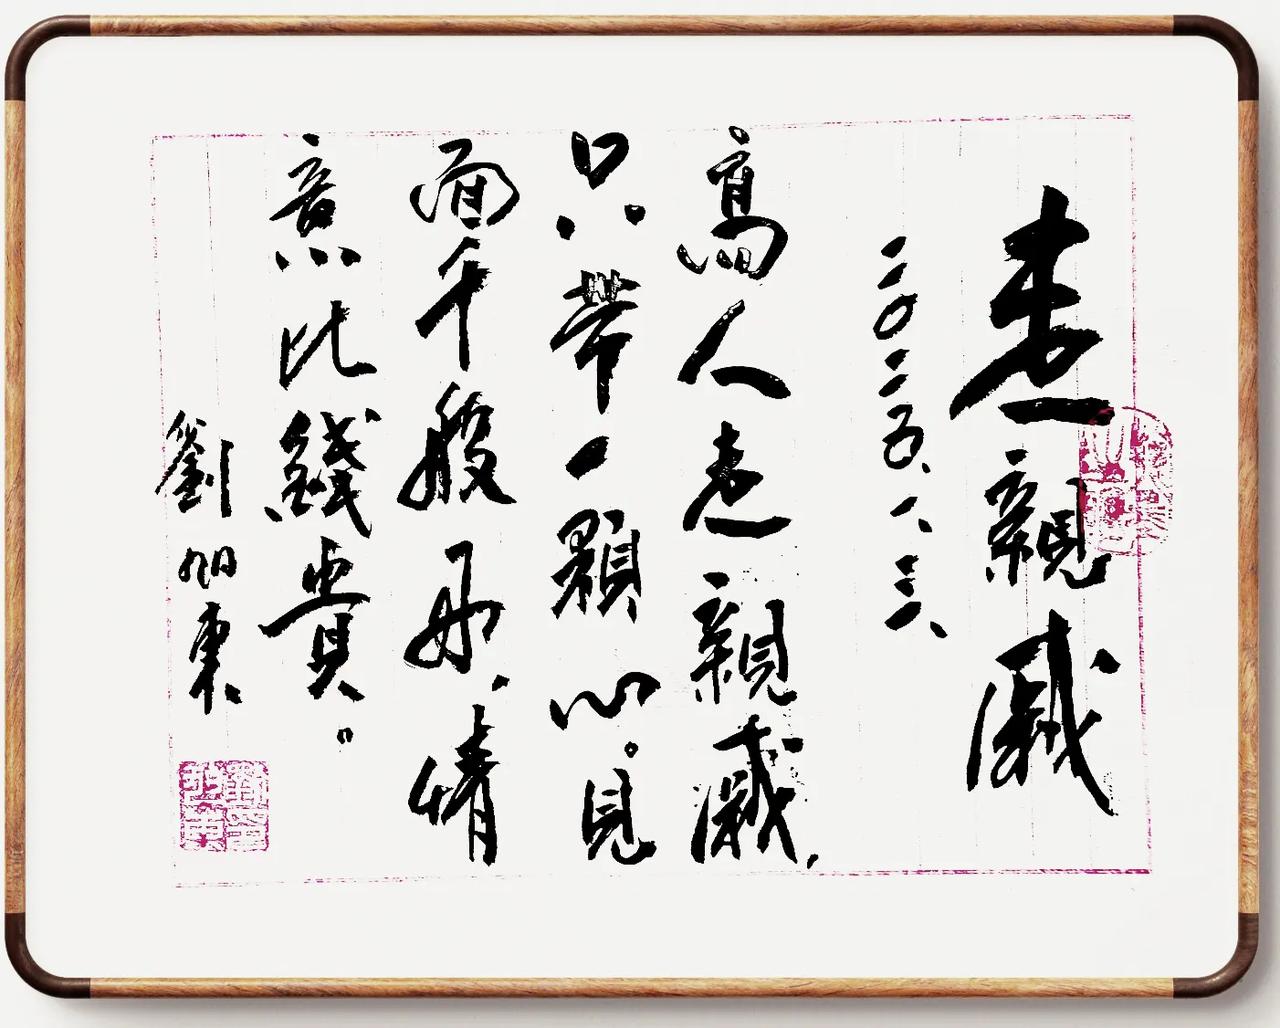 走親戚
二〇二五、一、三一、
高人走親戚，
只帶一顆心。見
面千般好，情
意比錢貴。
劉旭東